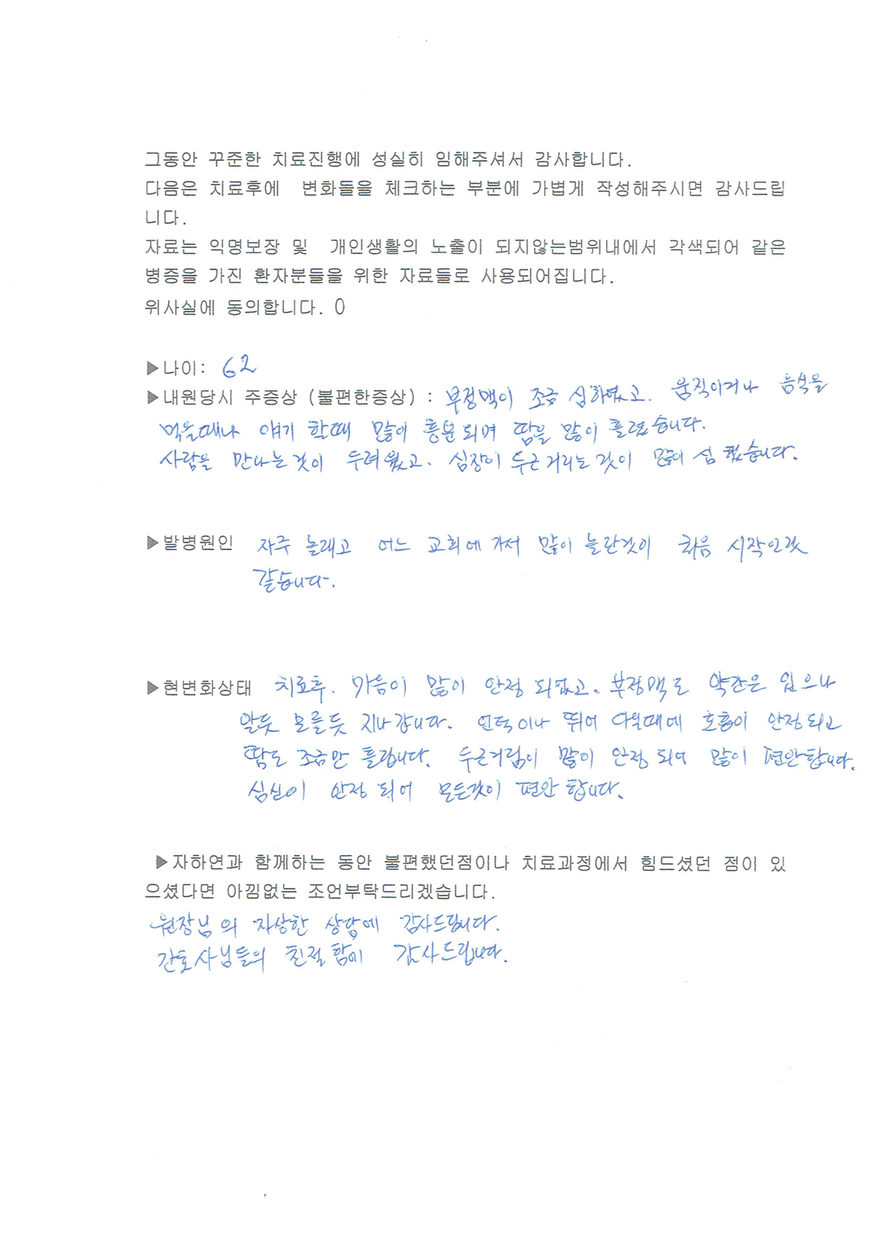 그동안 꾸준한 치료진행에 성실히 임해주셔서 감사합니다.
다음은 치료후에 변화들을 체크하는 부분에 가볍게 작성해주시면 감사드립
니다.
자료는 익명보장 및 개인생활의 노출이 되지않는범위내에서 각색되어 같은
병증을 가진 환자분들을 위한 자료들로 사용되어집니다.
위사실에 동의합니다. 0
▶나이: 62
▶내원당시 주증상 (불편한증상) : 부정맥이 조금 심하였고. 움직이거나 음식을
먹을때나 얘기 할때 많이 흥분되며 땀을 많이 흘렸습니다.
사람을 만나는것이 두려웠고. 심장이 두근거리는것이 많이 심했습니다.
▶발병원인 자주 놀래고 어느 교회에 가서 많이 놀란것이 처음 시작인것
같습니다.
▶현변화상태 치료후. 마음이 많이 안정 되었고. 부정맥도 약간은 있으나
알듯 모를듯 지나갑니다. 언덕이나 뛰어 다닐때에 호흡이 안정되고
땀도 조금만 흘립니다. 두근거림이 많이 안정 되어 많이 편안합니다.
심신이 안정 되어 모든것이 편안 합니다.
▶자하연과 함께하는 동안 불편했던점이나 치료과정에서 힘드셨던 점이 있
으셨다면 아낌없는 조언부탁드리겠습니다.
원장님의 자상한 상담에 감사드립니다.
간호사님들의 친절함에 감사드립니다.